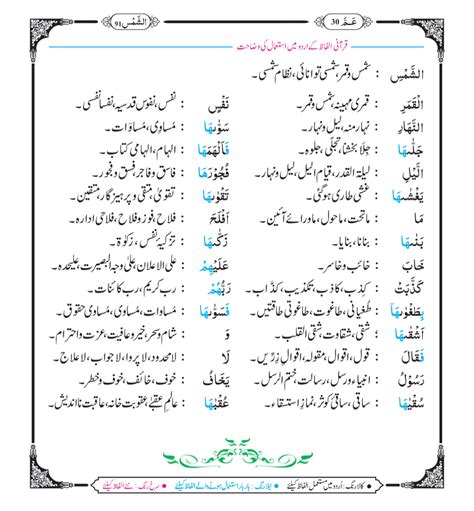 الشَّمْس 91
عَمَّ 30
قرآنی الفاظ کے اردو میں استعمال کی وضاحت
الشَّمْسِ : شمس وقمر، شمسی توانائی، نظام شمسی۔
الْقَمَرِ : قمری مہینہ، شمس وقمر۔
النَّهَارِ : نہار منہ، لیل ونہار۔
جَلّٰىهَا : جلا بخشنا، تجلی، جلوہ۔
الَّيْلِ : لیلۃ القدر، قیام اللیل، لیل ونہار۔
يَغْشٰىهَا : غشی طاری ہوگئی۔
مَا : ماتحت، ماحول، ماورائے آئین۔
بَنٰىهَا : بنانا، بنایا۔
خَابَ : خائب وخاسر۔
كَذَّبَتْ : کذب وافترا، کاذب، تکذیب، کذاب۔
بِطَغْوٰىهَا : طغیانی، طاغوت، طاغوتی طاقتیں۔
اَشْقٰىهَا : شقی، شقاوت، شقی القلب۔
فَقَالَ : قول، اقوال، مقولہ، اقوال زرّیں۔
رَسُوْلُ : انبیاء ورسل، رسالت، ختم الرسل۔
سُقْيٰهَا : ساقی، ساقی کوثر، نماز استسقاء۔
نَفْسٍ : نفس، نفوس قدسیہ، نفسا نفسی۔
سَوّٰىهَا : مساوی، مساوات۔
فَاَلْهَمَهَا : الہام، الہامی کتاب۔
فُجُوْرَهَا : فاسق وفاجر، فسق وفجور۔
تَقْوٰىهَا : تقویٰ، متقی وپرہیزگار، متقین۔
اَفْلَحَ : فلاح، فوز وفلاح، فلاحی ادارہ۔
زَكّٰىهَا : تزکیہ نفس، زکوۃ۔
عَلَيْهِمْ : علی الاعلان، علیٰ وجہ البصیرت، علیحدہ۔
رَبُّهُمْ : رب کریم، رب کائنات۔
فَسَوّٰىهَا : مساوات، مساوی، مساوی حقوق۔
وَ : شام وسحر، خیر وعافیت، عزت واحترام۔
لَا : لامحدود، لاپروا، لاجواب، لاعلاج۔
يَخَافُ : خوف، خائف، خوف وخطر۔
عُقْبٰهَا : عالم عقبیٰ، عقوبت خانہ، عاقبت نااندیش۔
کالا رنگ : اُردو میں مستعمل الفاظ کیلئے • نیلا رنگ : بار بار استعمال ہونے والے الفاظ کیلئے • سرخ رنگ : نئے الفاظ کیلئے